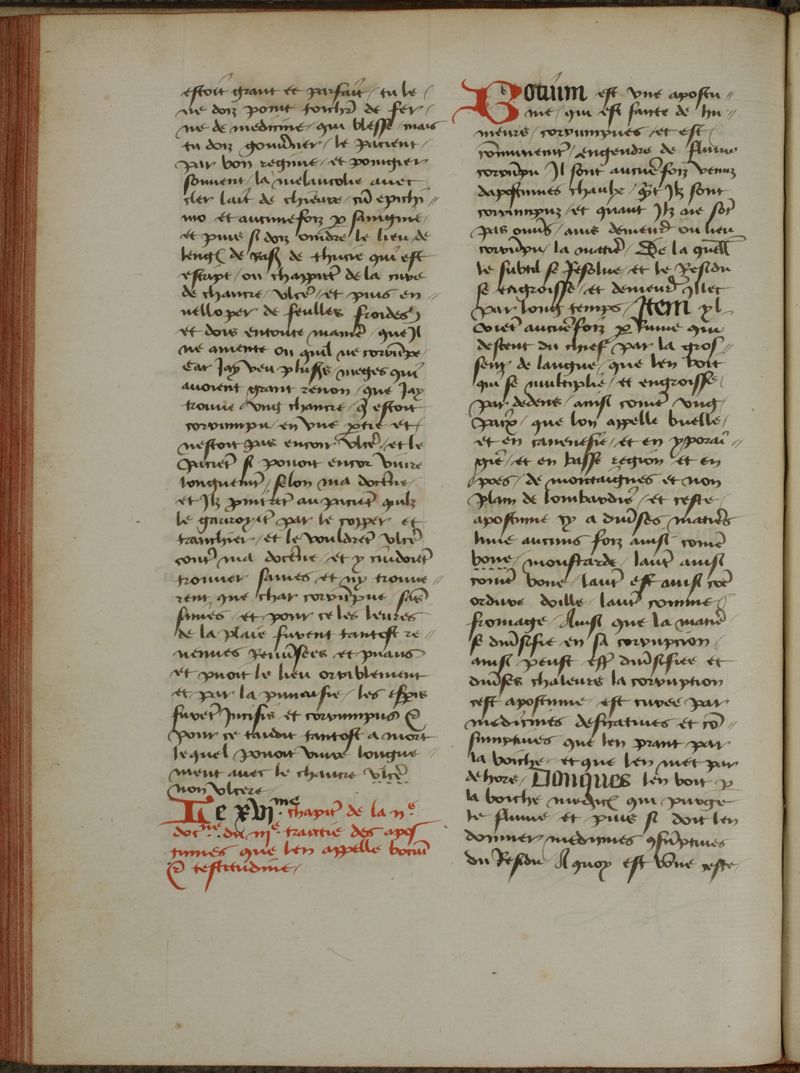 estoit grant et parfait / tu le /
ne dois point toichr de fer /
ne de medicine / qui blesse / mais
tu dois gouuerner / le pacient /
par bon regime / et pourgier
souuent / la melancolie auec
cler lait de chieure / cu epithi //
mo et aucunefoiz p saingnie /
et puis si dois oindre le lieu de
de thucie qui est
escript / ou chappitre de la cure
de chancre / vlcere / et puis en //
uelloper de feulles froides
et dois en toute maniere / que Il
ne amente ou quil ne corumpe /
Car Jay veu plusrs meges qui
auoient grant renon / que Jay
trouue / vng chancre / q estoit
corrumpu / en vne ptie et /
nestoit pas encor vlcere / et le
pacient si pouoit encor viure
longuement / selon ma doctrine /
et Ilz au pacient quilz
le garroyent par le copper et
tranchier / et le vouldrent vlcerer
contre ma doctrine / et y cuidoient
trouuer saines / et ny trouue //
rent que char corrumpue / sans
/ et pour ce les leures
de la plaie furent tantost re //
uenues Reuersees et puans
et puoit le lieu orriblement
et par la punaisie / les esperis
furent Jnferis et corrumpus
pour ce tandit tantost a mort
lequel pouoit viure longue //
ment auec le chancre vlcere
non vlcere /
Le xvj.me chapitre de la n.e
docne du iije traictie des apos
tumes que len appelle bocium
testitudine /
Bocium est vne apostu //
me / qui est faite de hu //
meurs / corrumpues / et est /
communement / engendre de flume
corrumpu Il sont aucunesfoiz
dapostumes chaulx / quant Ilz sont
corrumpuz / et quant Ilz ne sont
pas / ains demeure ou lieu
corrumpu / la matiere / De la quelle
le subtil se Resolue / et le Residu
se engroisse / et demeure Illec
par long temps / Item yl
vient aucunesfoiz p rume qui
descent du chief / par la gros //
seur de langue / que len boit
qui se multiplie / et engroisse /
par dedens / ainsi comme vng
/ que lon appelle buelle /
et en / et en
/ et en basse region et en
/ de montaignes et non
plain de lombardie / et ceste /
apostume yl a diuerses matieres
lune aucuns foiz ainsi comme
boue / moustarde / lautre ainsi
comme boue / lautre est ainsi comme
ordure doille / lautre comme
fromage / Ainsi que la matiere
se diuersifie en sa corrupcion /
ainsi peust estre diuersifiee et
diuerses chaleurs la corruption
cest apostume / est curee par
medicines desicatiues et con //
sumptiues que len prant par
la boiche / et que len met par
dehors / Donques len boit p
la boiche medicine qui purge
le flume et puis si doit len
donner / medicines consumptiues
du Residu A quoy est bonne ceste